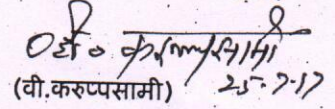 वी० करुप्पसामी
(वी.करुप्पसामी) 25-7-17